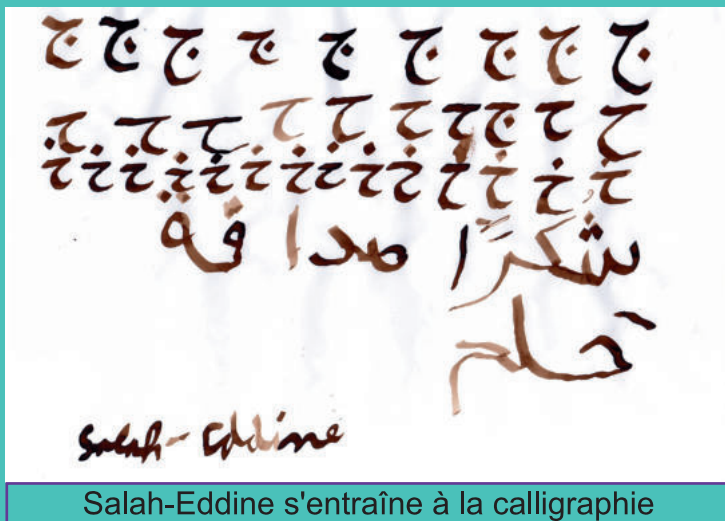 ج ج ج ج ج ج ج ج ج
ح ح ج ح ح ح ح ح ح ح
خ خ خ خ خ خ خ خ خ خ خ خ خ خ
شُكرًا صداقة
حلم
Salah-Eddine
Salah-Eddine s'entraîne à la calligraphie